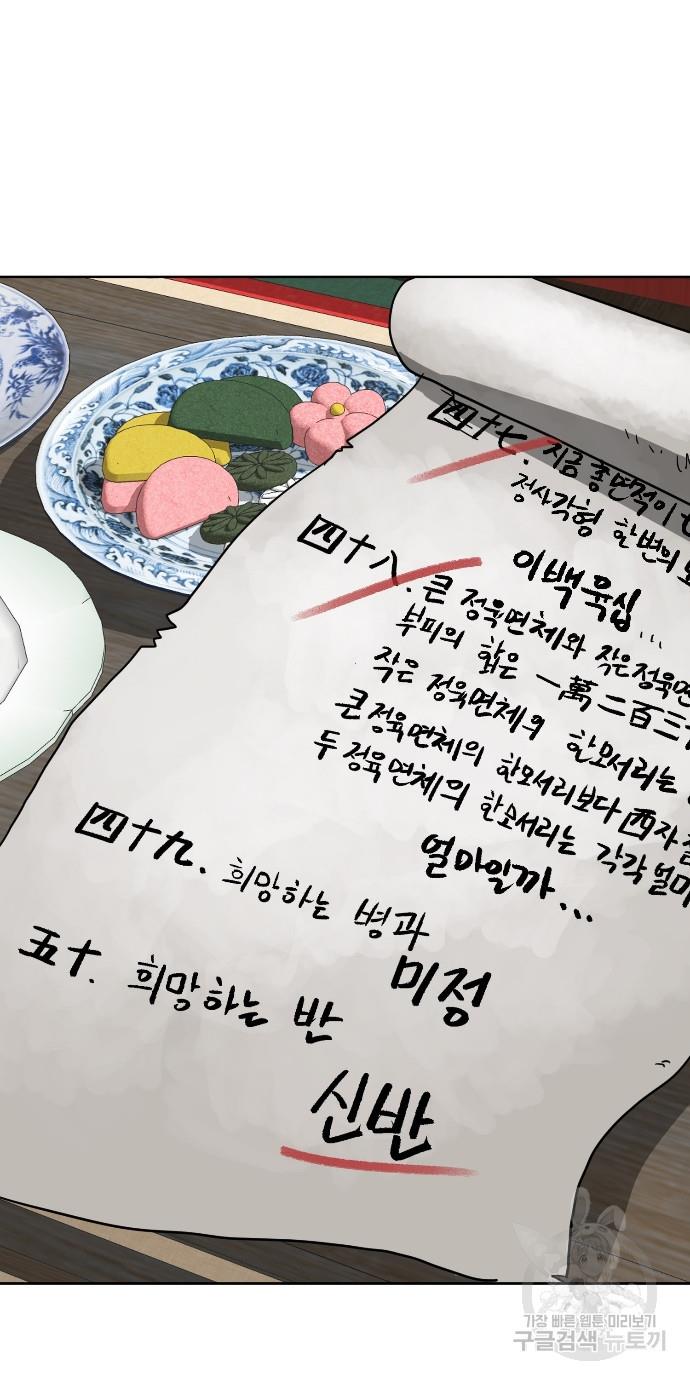 四十七. 지금 총면적이
정사각형 한변의
이백육십...
四十八. 큰 정육면체와 작은 정육면
부피의 합은 一萬二百三十
작은 정육면체의 한모서리는
큰 정육면체의 한모서리보다 四자
두 정육면체의 한모서리는 각각 얼마
얼마일까...
四十九. 희망하는 병과
미정
五十. 희망하는 반
신반
가장 빠른 웹툰 미리보기
구글검색 뉴토끼